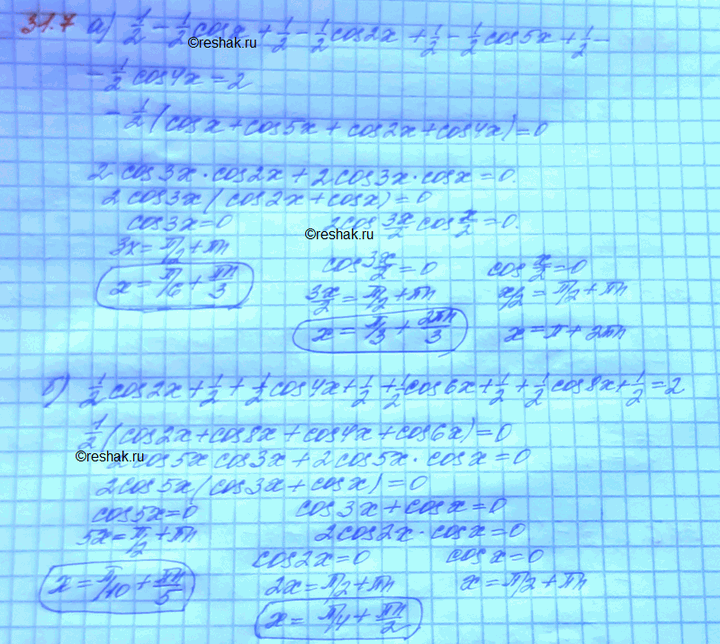 31.7 а) 1/2 - 1/2 cos x + 1/2 - 1/2 cos2x + 1/2 - 1/2 cos5x + 1/2 -
©reshak.ru
- 1/2 cos4x - 2
- 1/2 (cosx + cos5x + cos2x + cos4x) = 0
2 cos3x · cos2x + 2cos3x · cosx = 0.
2 cos3x (cos2x + cosx) = 0
cos3x = 0 2cos 3x/2 cos x/2 = 0.
©reshak.ru
3x = π/2 + πn cos 3x/2 = 0 cos x/2 = 0
x = π/6 + πn/3 3x/2 = π/2 + πn x/2 = π/2 + πn
x = π/3 + 2πn/3 x = π + 2πn
б) 1/2 cos2x + 1/2 + 1/2 cos4x + 1/2 + 1/2 cos6x + 1/2 + 1/2 cos8x + 1/2 = 2
1/2 (cos2x + cos8x + cos4x + cos6x) = 0
©reshak.ru
2cos5x cos3x + 2cos5x · cosx = 0
2cos5x (cos3x + cosx) = 0
cos5x = 0 cos3x + cosx = 0
5x = π/2 + πn 2cos2x · cosx = 0
cos2x = 0 cosx = 0
x = π/10 + πn/5 2x = π/2 + πn x = π/2 + πn
x = π/4 + πn/2